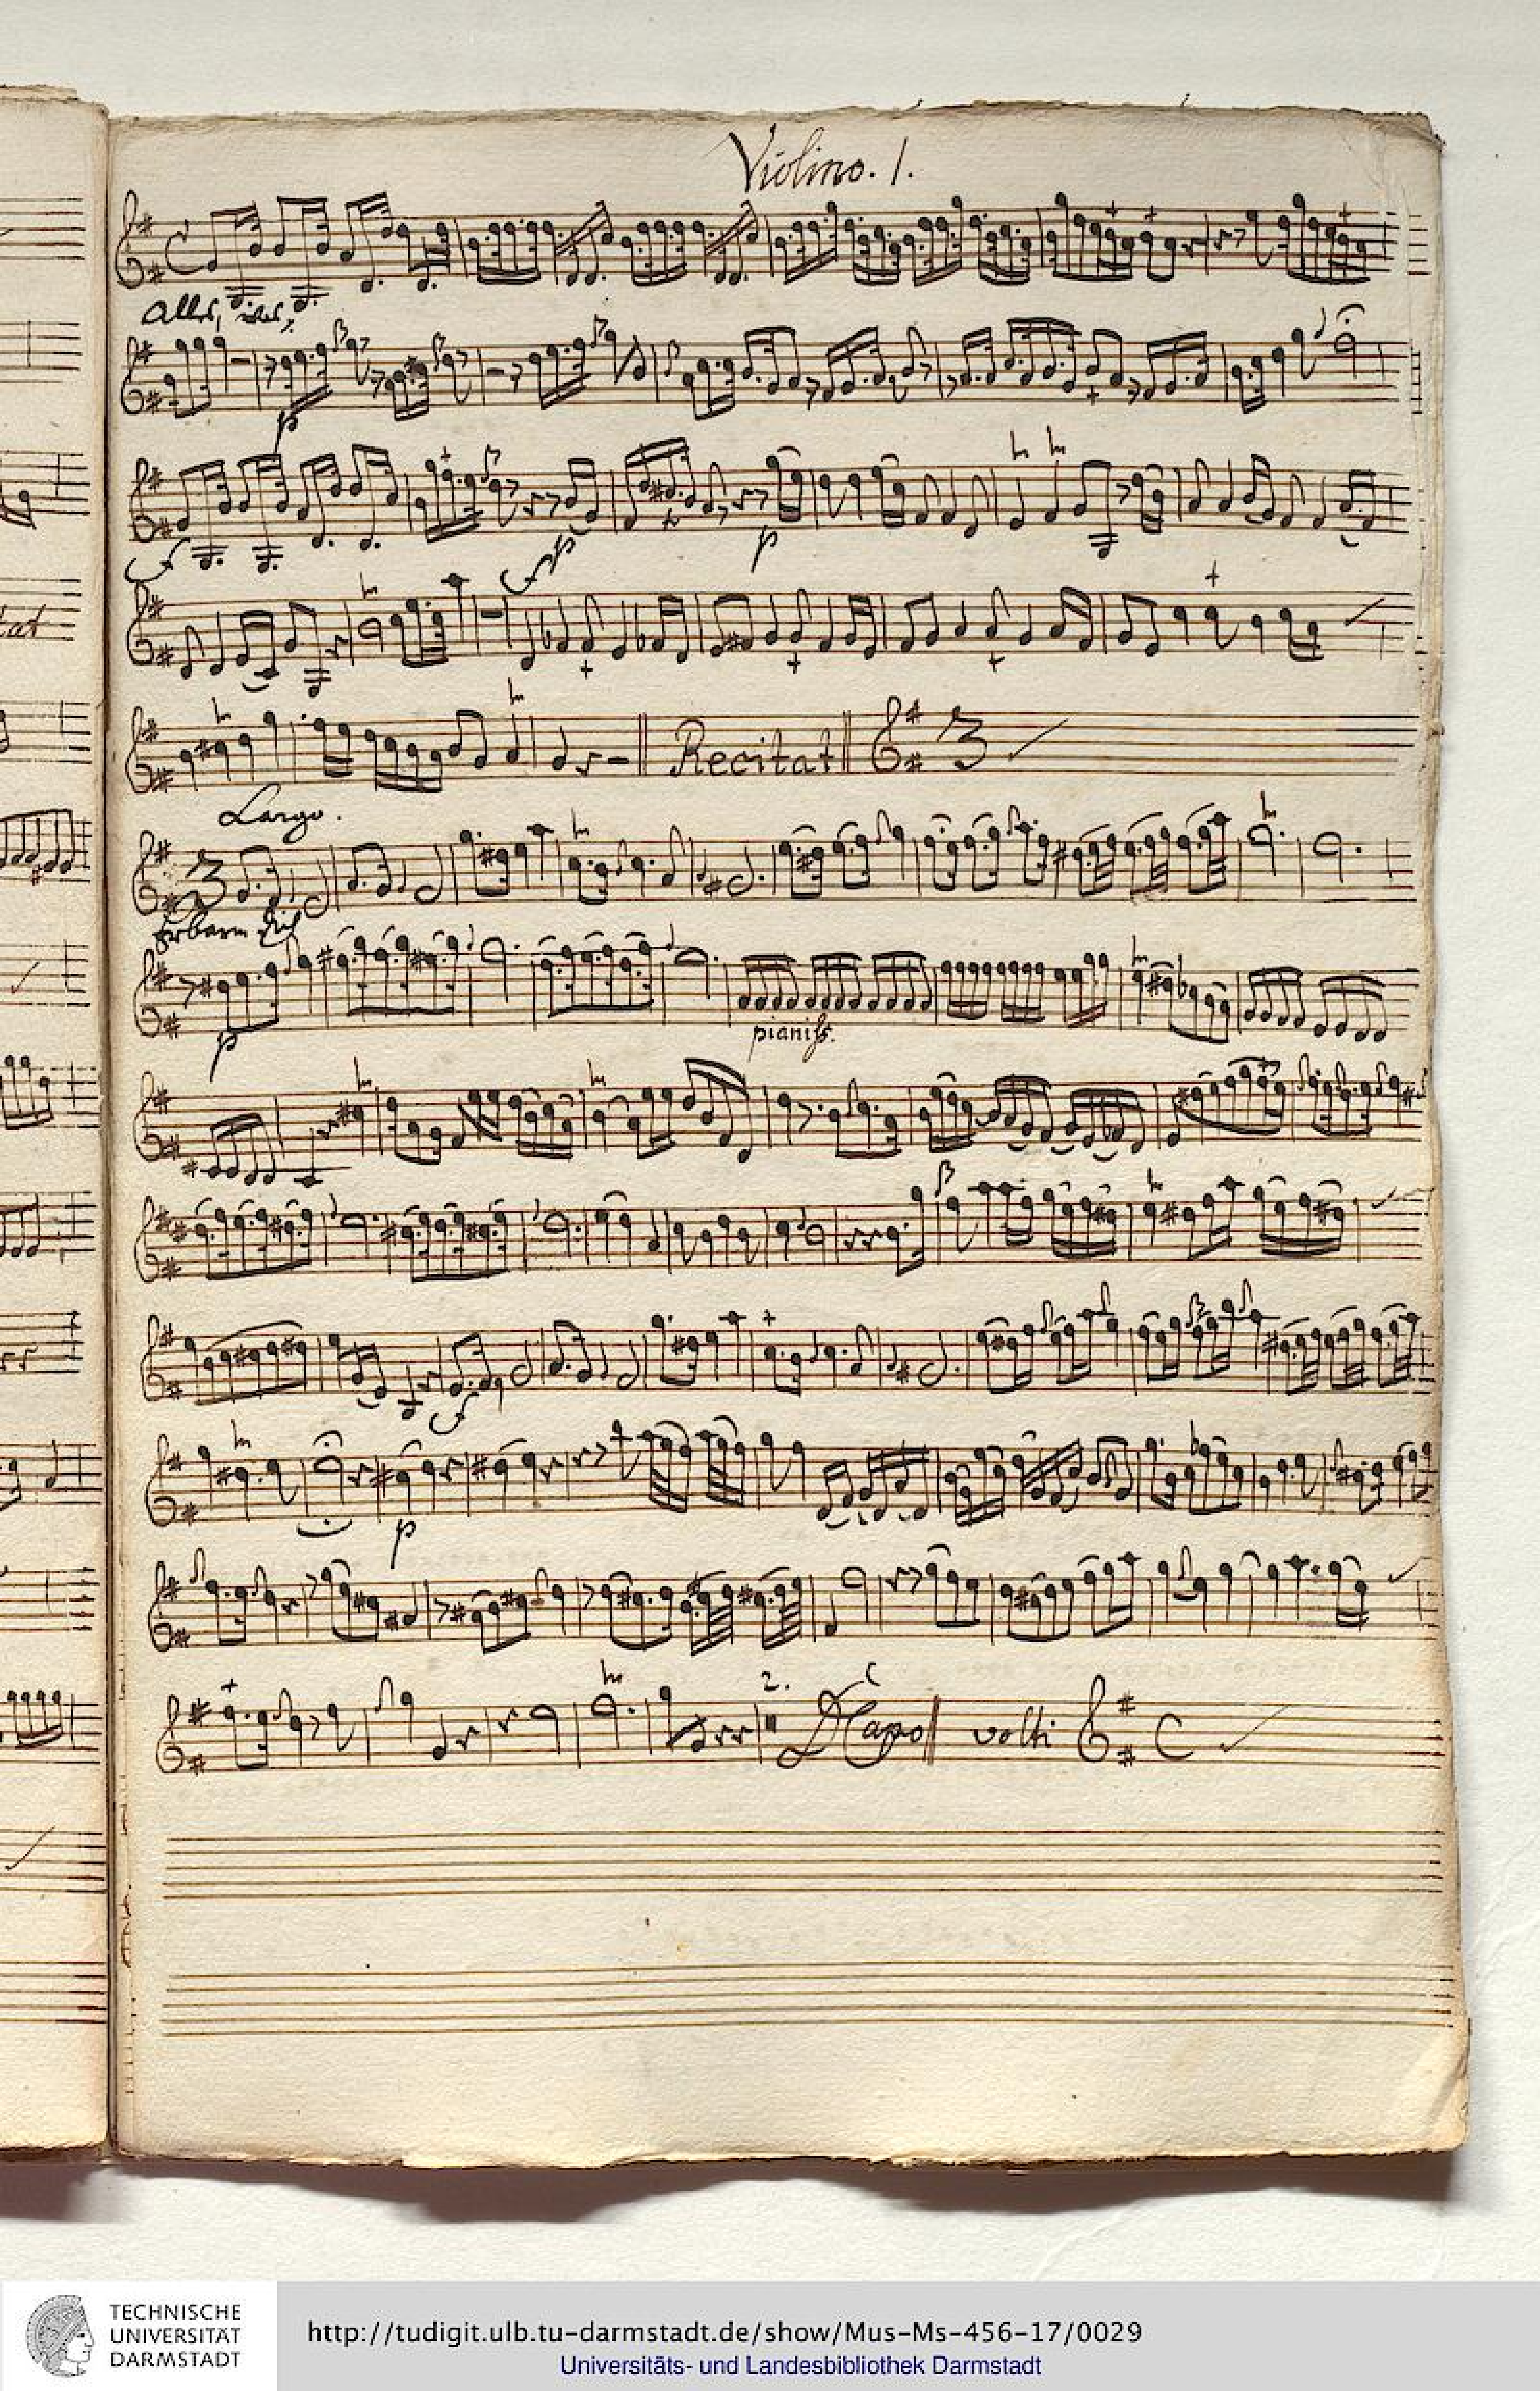 Violino. 1.
Alles,
p
f
p
f
p
Recitat
3
Largo.
3
Erbarm dich
p
pianiss.
f
p
2.
D Capo
volti
C
tat
TECHNISCHE
UNIVERSITÄT
DARMSTADT
http://tudigit.ulb.tu-darmstadt.de/show/Mus-Ms-456-17/0029
Universitäts- und Landesbibliothek Darmstadt